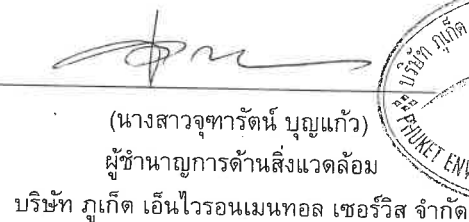 (นางสาวจุฑารัตน์ บุญแก้ว)
ผู้ชำนาญการด้านสิ่งแวดล้อม
บริษัท ภูเก็ต เอ็นไวรอนเมนทอล เซอร์วิส จำกัด
บริษัท ภูเก็ต
PHUKET